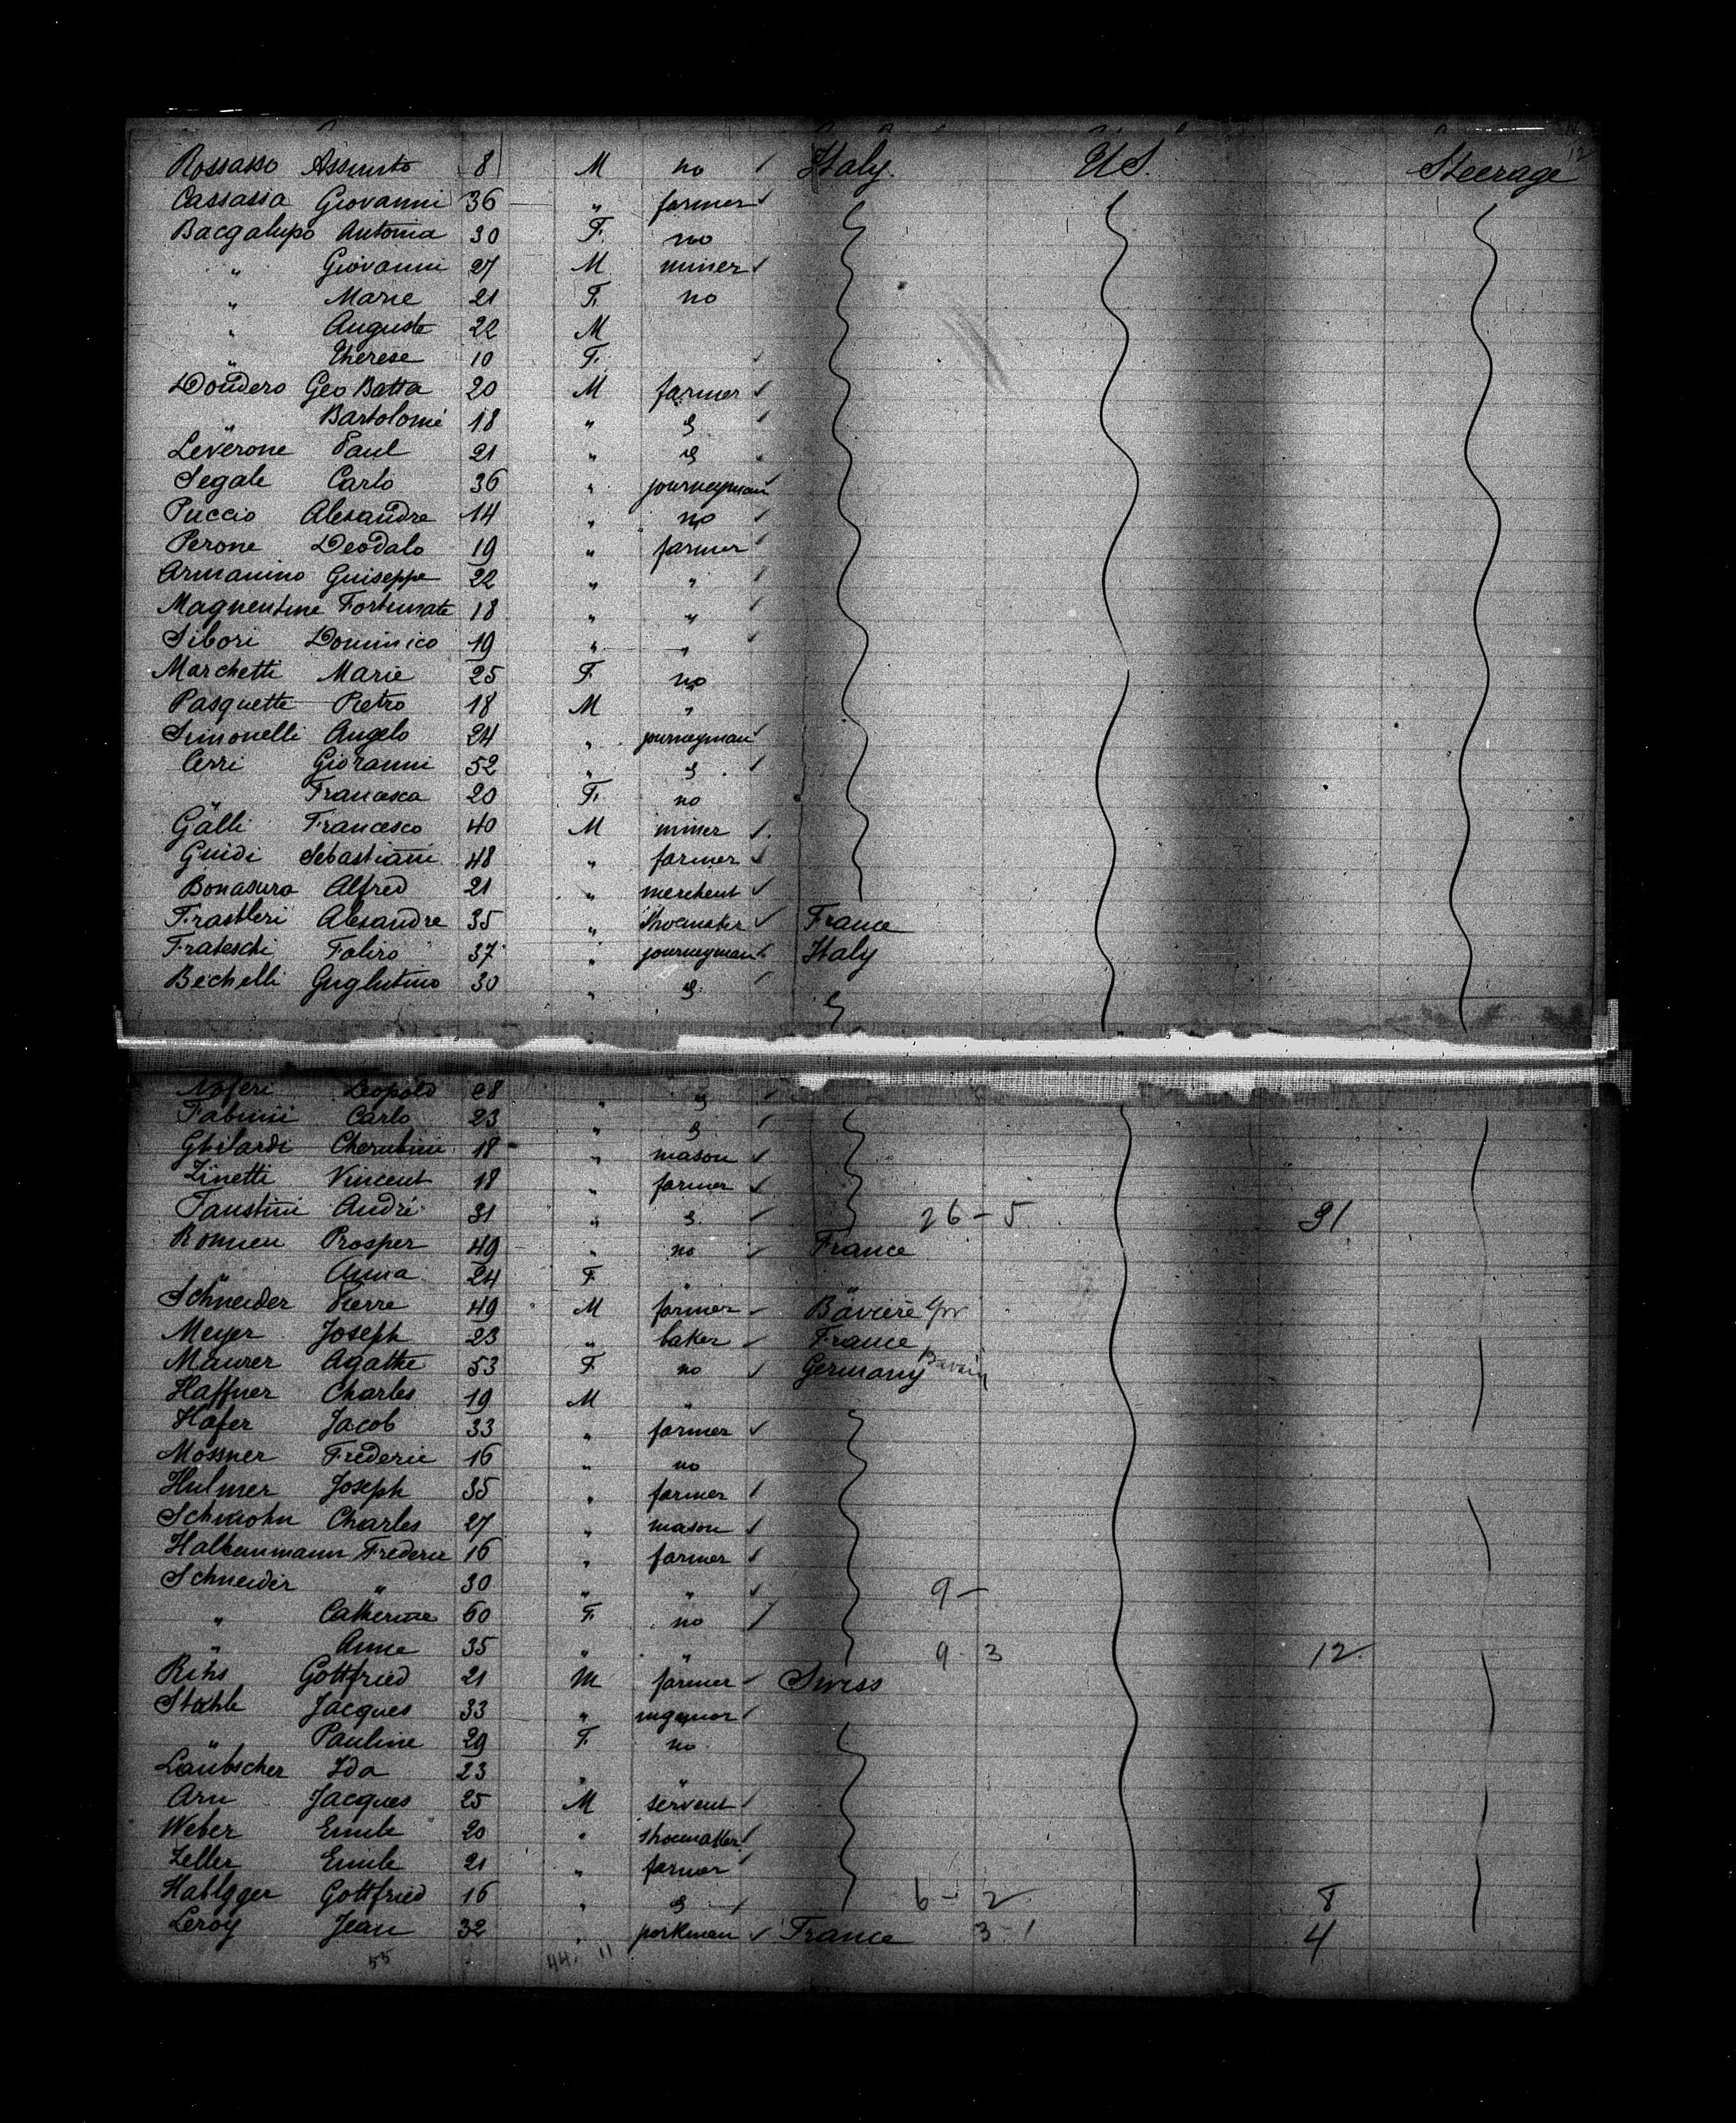 12
Rossasso Assunto 8 M no ✓ Italy. U S. Steerage
Cassasia Giovanni 36 — " farmer ✓
Bacgalupo Antonia 30 F. no
" Giovanni 27 M miner ✓
" Marie 21 F. no
" Auguste 22 M
" Therese 10 F. ✓
Dondero Geo Batta 20 M farmer ✓
" Bartolomé 18 " " ✓
Leverone Paul 21 " "
Segale Carlo 36 " journeyman ✓
Puccio Alexandre 14 " no ✓
Perone Deodalo 19 " farmer ✓
Armanino Guiseppe 22 " " ✓
Magnentine Fortunate 18 " " ✓
Sibori Dominico 19 " " ✓
Marchetti Marie 25 F. no
Pasquette Pietro 18 M "
Simonelli Angelo 24 " journeyman ✓
Cerri Giovanni 52 " " ✓
" Francesca 20 F. no
Galli Francesco 40 M miner ✓
Guidi Sebastiani 48 " farmer ✓
Bonasura Alfred 21 " merchent ✓
Alexandre 35 " shoemaker ✓ France
Frateschi 37 " journeyman ✓ Italy
Bechelli 30 " " ✓
Noferi Leopold 28 " " ✓
Fabrini Carlo 23 " " ✓
Ghilardi Cherubini 18 " mason ✓
Zinetti Vincent 18 " farmer ✓
Faustini André 31 " " ✓ 26 - 5 31
Romieu Prosper 49 " no ✓ France
" Anna 24 F. " "
Schneider Pierre 49 M farmer ✓ Bavière
Meyer Joseph 23 " baker ✓ France
Maurer Agathe 53 F. no ✓ Germany
Haffner Charles 19 M "
Hafer Jacob 33 " farmer ✓
Mossner Frederic 16 " no
Hulmer Joseph 35 " farmer ✓
Charles 27 " mason ✓
Haltenmann Frederic 16 " farmer ✓
Schneider " 30 " " ✓ 9 -
" Catherine 60 F. no ✓
" Anne 35 " " 9 - 3 12
Rihs Gottfried 21 M farmer ✓ Swiss
Stahle Jacques 33 " ✓
" Pauline 29 F. no
Laubscher Ida 23 " "
Arn Jacques 25 M servent ✓
Weber Emile 20 " shoemaker ✓
Zeller Emile 21 " farmer ✓
Hablgger Gottfried 16 " " ✓ 6 - 2 8
Leroy Jean 32 " porkman ✓ France 3 - 1 4
55 44. 11